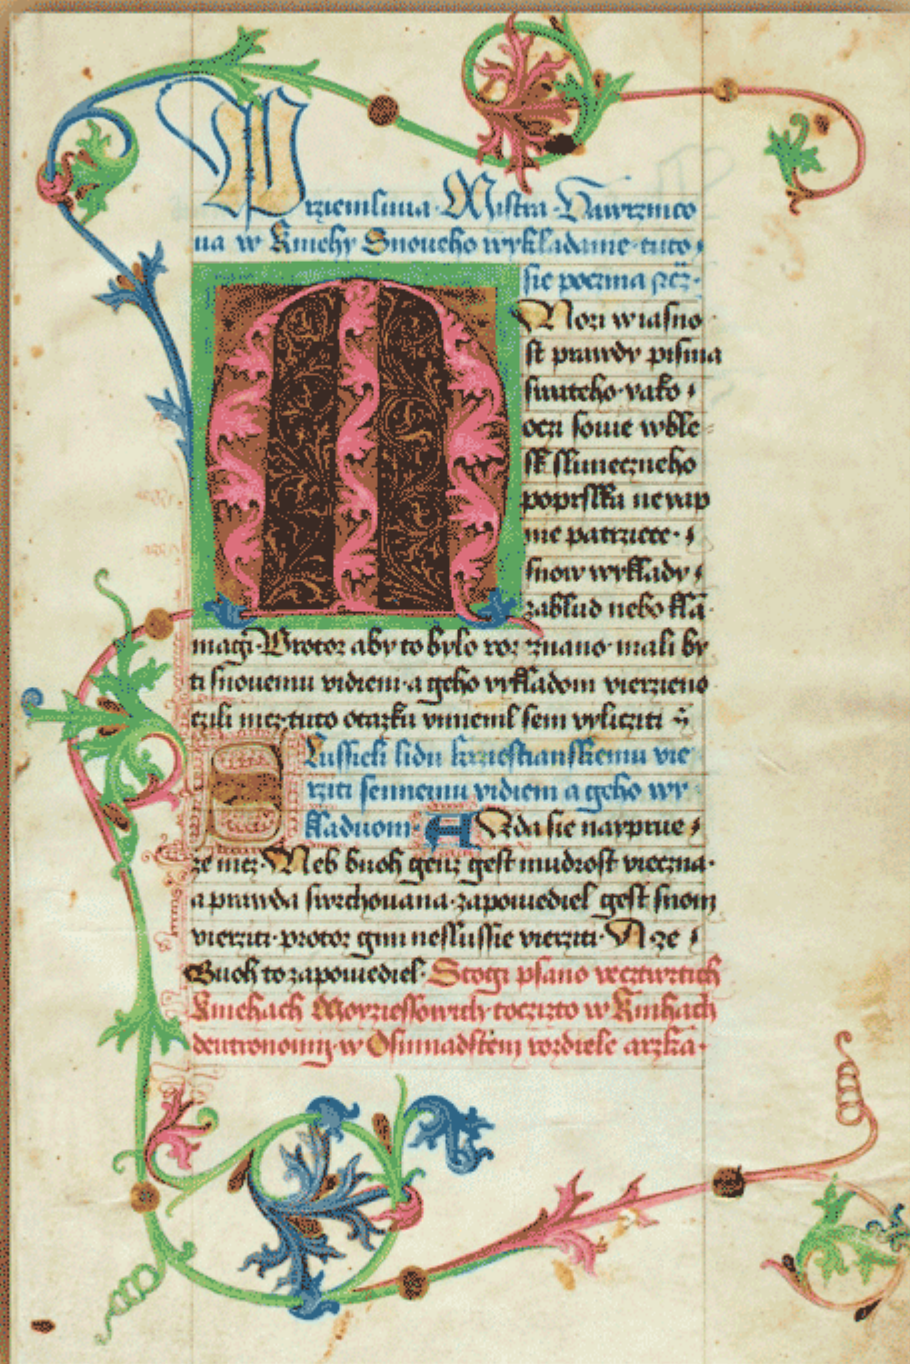 Prziemluua Mistra Vawrzincο
ua w Kniehy Snoueho wykladanie tuto
sie poczina rzecz
Mozi w iasno
st prawdy pisma
swateho yako
oczi sowie w ble
sk sluneczneho
poprslku
nie patrziecz
snow wyklady
zablud nebo kla
magi Protoz aby to bylo poznano mali by
ti snouemu vidieni a geho vykladom vierzieno
czili nicz tuto otazku vmienil sem vylicziti
Slussieli lidu krziestianskemu vie
rziti sennemu vidieni a geho wy
kladuom A Zda sie nayprue
ze nicz Neb buoh genz gest mudrost vieczna
a prawda swrchouana zapouiediel gest snom
vierziti protoz gim neslussie vierziti A ze
Buoh to zapouiediel Stogi psano weczwrtich
Kniehach Moyziessowich toczizto w Knihach
deutronomy w Osmnadstem rozdiele arzka